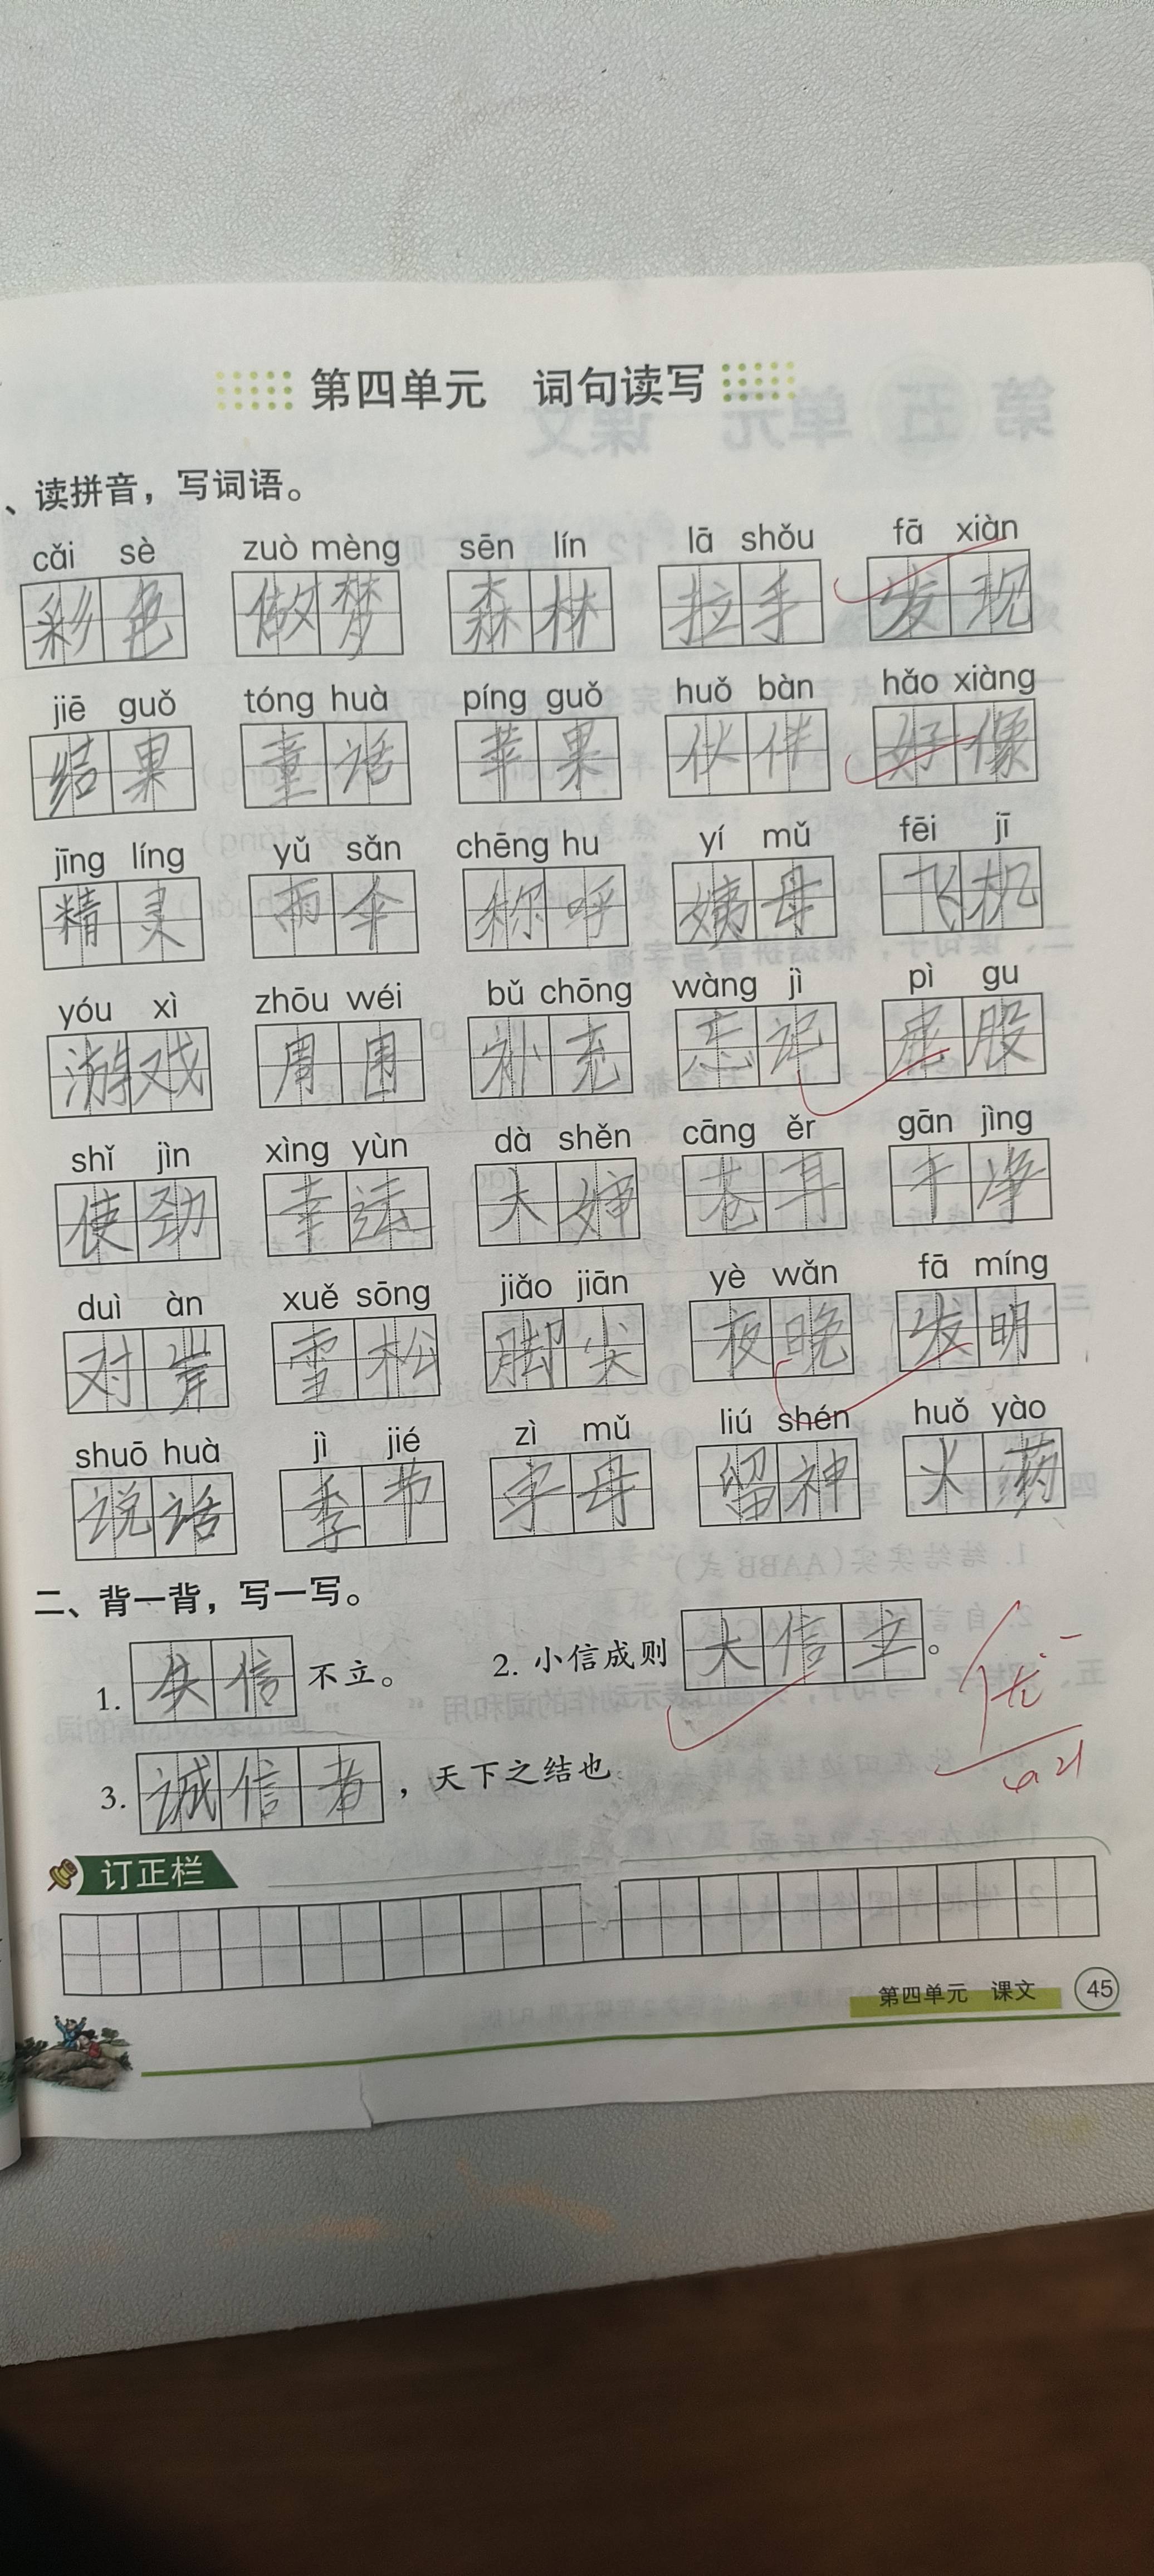 第四单元 词句读写
、读拼音，写词语。
cǎi sè zuò mèng sēn lín lā shǒu fā xiàn
彩色 做梦 森林 拉手 发现
jiē guǒ tóng huà píng guǒ huǒ bàn hǎo xiàng
结果 童话 苹果 伙伴 好像
jīng líng yǔ sǎn chēng hu yí mǔ fēi jī
精灵 雨伞 称呼 姨母 飞机
yóu xì zhōu wéi bǔ chōng wàng jì pì gu
游戏 周围 补充 忘记 屁股
shǐ jìn xìng yùn dà shěn cāng ěr gān jìng
使劲 幸运 大婶 苍耳 干净
duì àn xuě sōng jiǎo jiān yè wǎn fā míng
对岸 雪松 脚尖 夜晚 发明
shuō huà jì jié zì mǔ liú shén huǒ yào
说话 季节 字母 留神 火药
二、背一背，写一写。
1. 失信 不立。 2. 小信成则 大信立 。
3. 诚信者 ，天下之结也
优-
订正栏
第四单元 课文 45